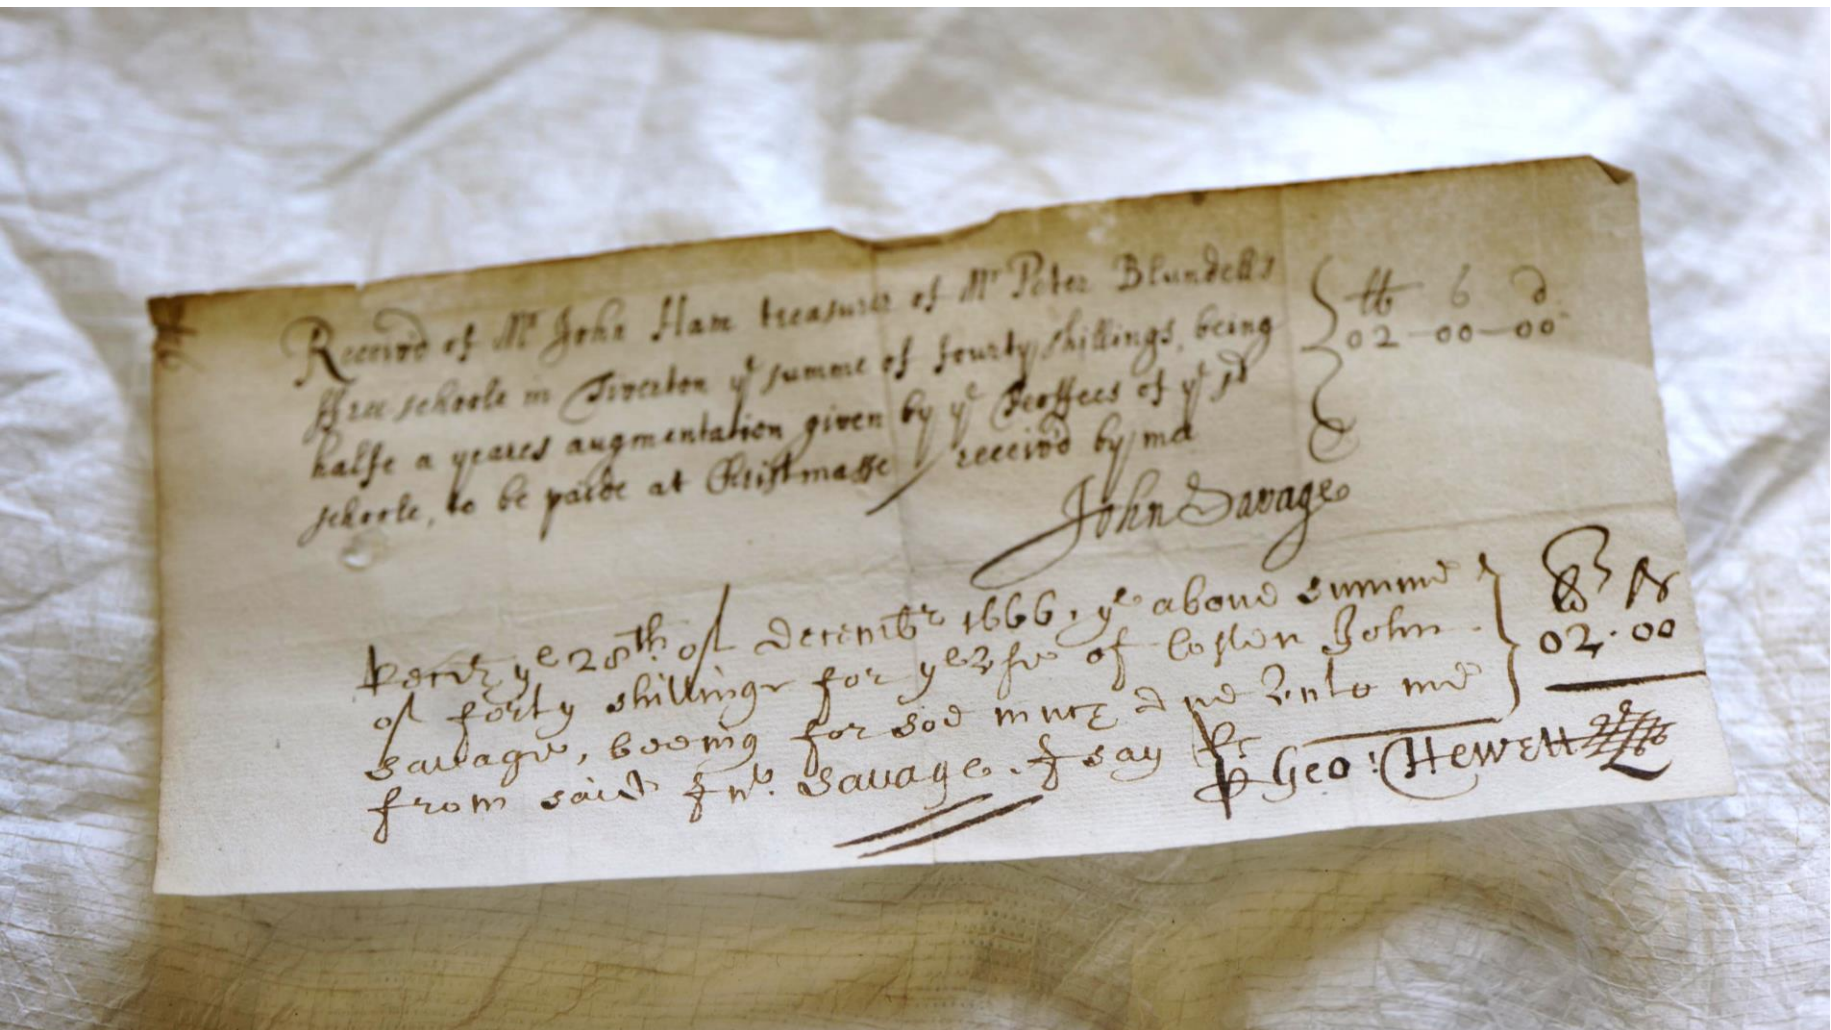 Receivd of Mr John Ham treasurer of Mr Peter Blundells
ffree schoole in Tiverton ye summe of fourty shillings, being
halfe a yeares augmentation given by ye Feoffees of ye sd
schoole, to be paide at Christmasse / receivd by me
John Savage
lb s d
02-00-00
Recd ye 28th of decembr 1666, ye above summe
of forty shillings for ye use of John
Savage, beeing for soe much due unto me
from said Jno. Savage. I say
02.00
Geo: Hewett